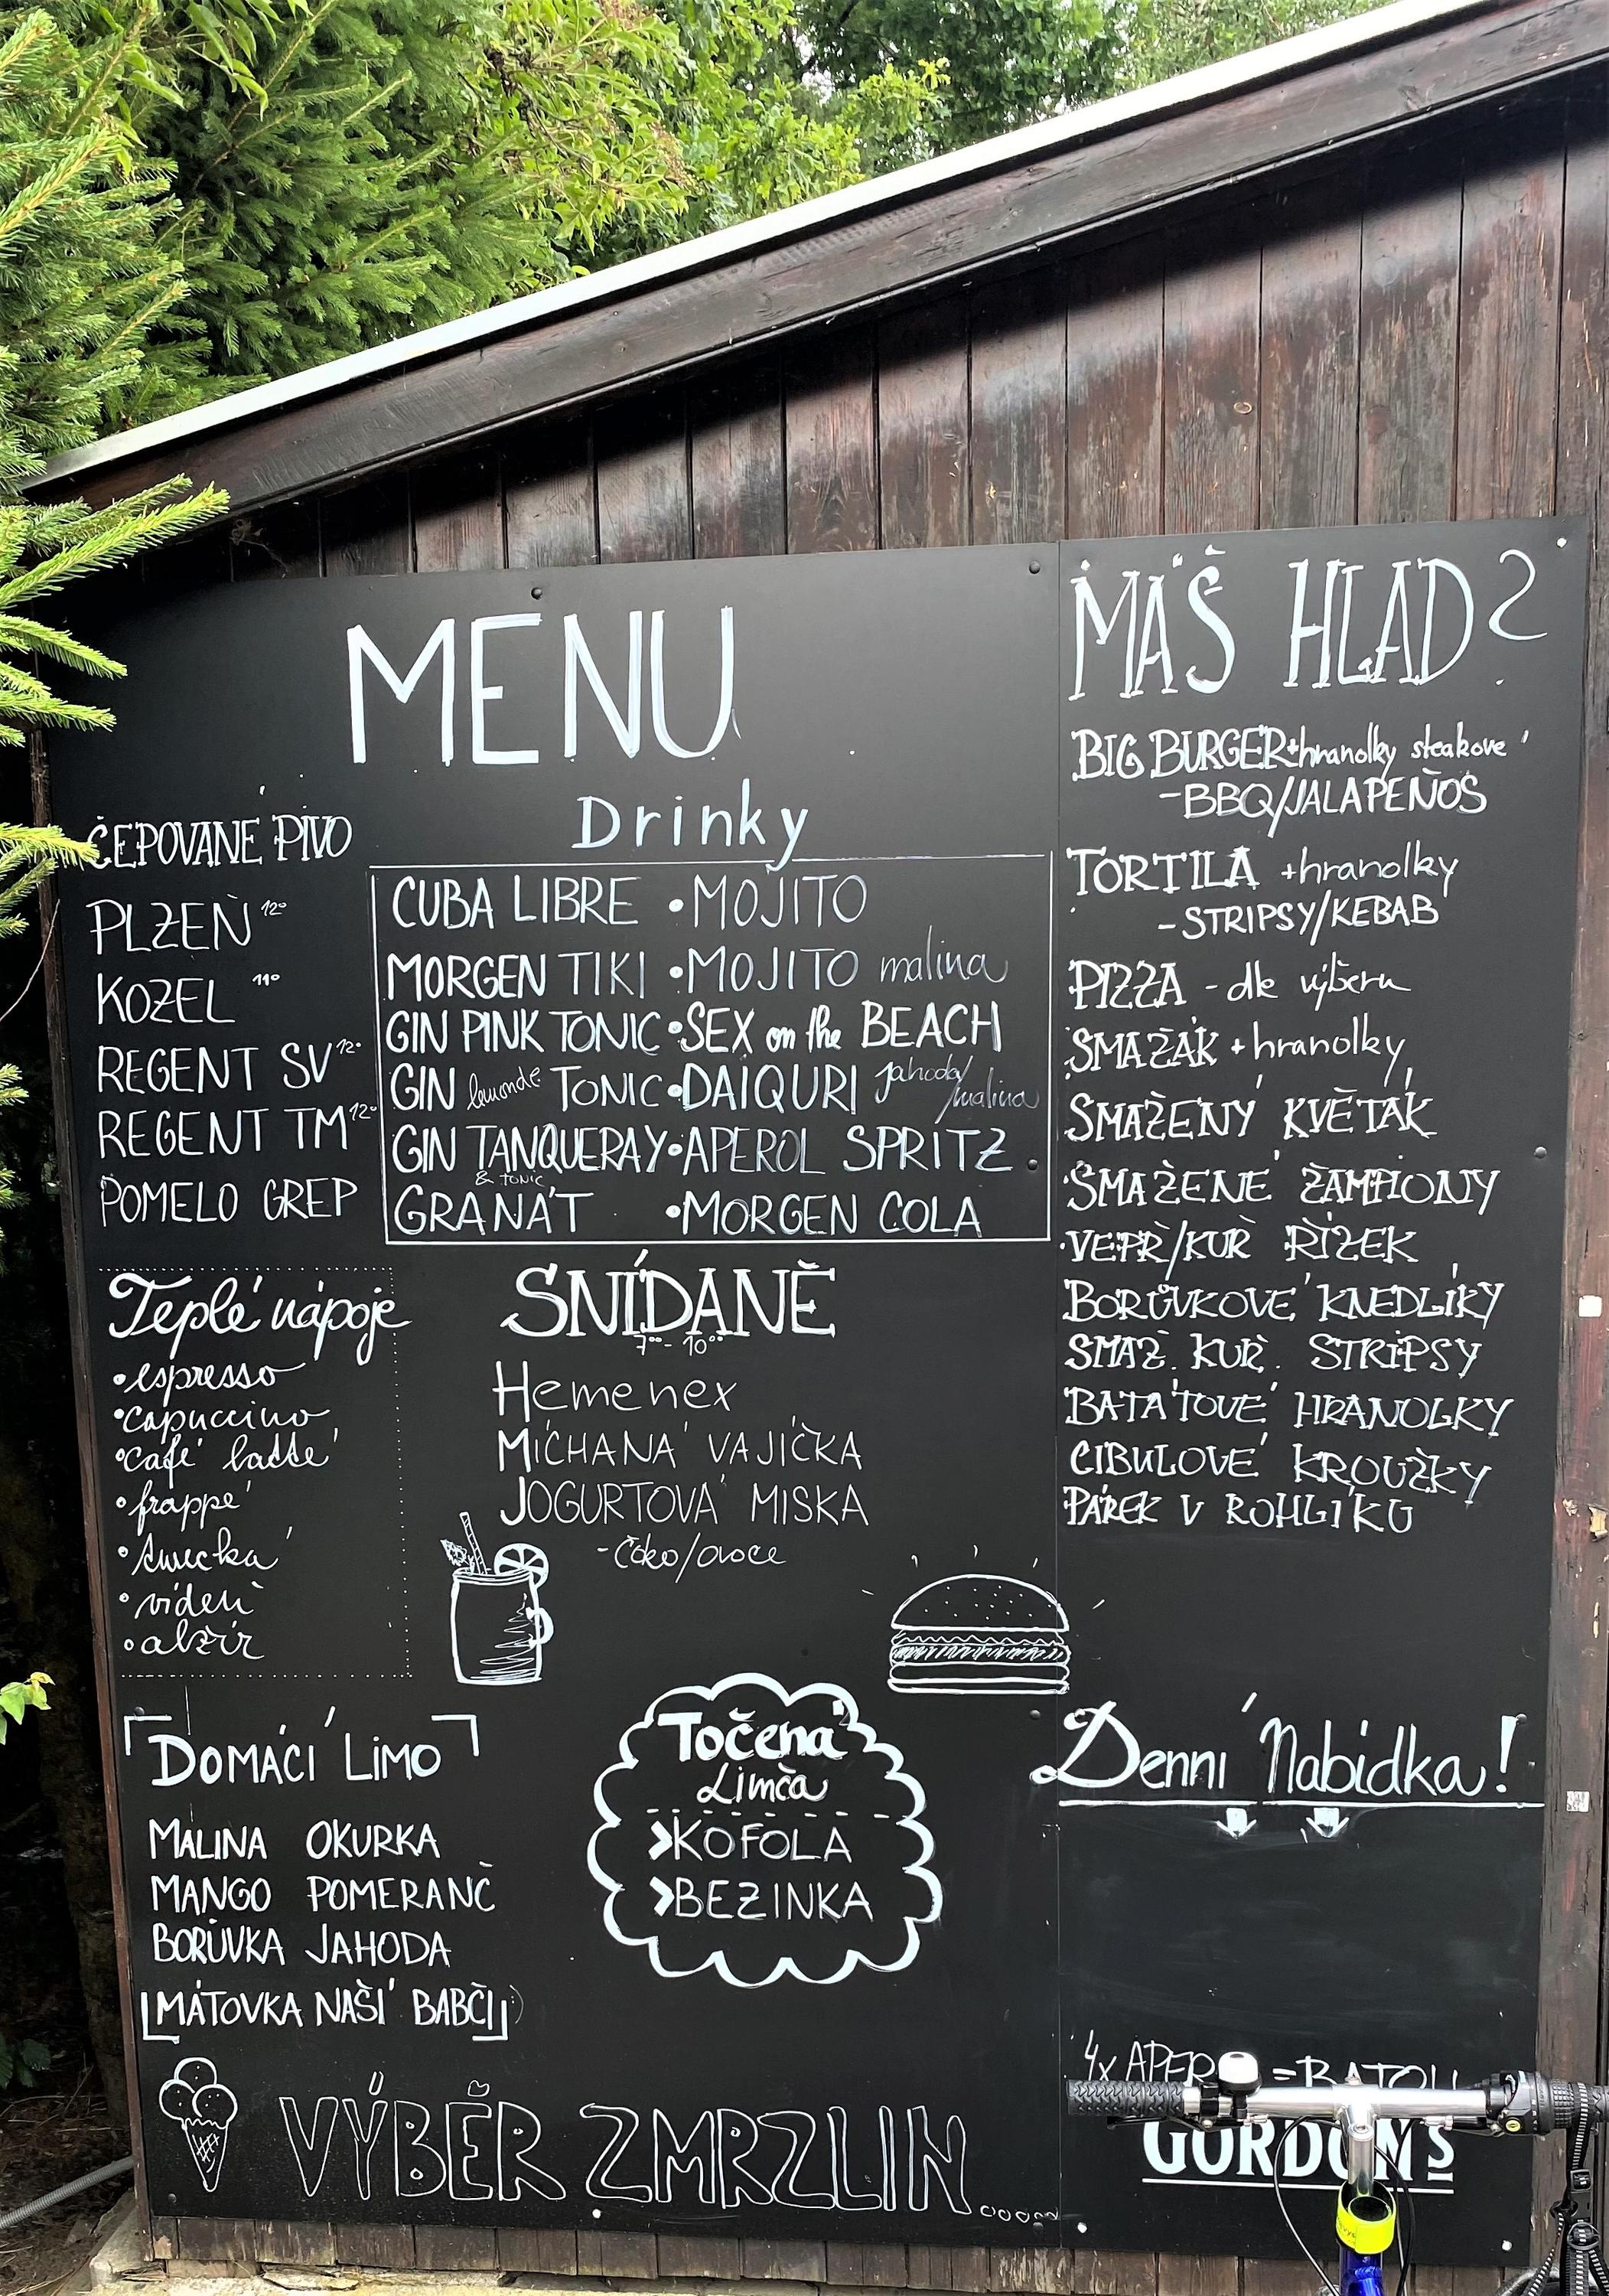 MENU
ČEPOVANÉ PIVO
PLZEŇ 12°
KOZEL 11°
REGENT SV 12°
REGENT TM 12°
POMELO GREP
Drinky
CUBA LIBRE • MOJITO
MORGEN TIKI • MOJITO malina
GIN PINK TONIC • SEX on the BEACH
GIN lemonde TONIC • DAIQURI jahoda/malina
GIN TANQUERAY • APEROL SPRITZ
& TONIC
GRANÁT • MORGEN COLA
Teplé nápoje
• espresso
• capuccino
• café latté
• frappé
• turecká
• vídeň
• alžír
SNÍDANĚ
7⁰⁰ - 10⁰⁰
Hemenex
MÍCHANÁ VAJÍČKA
JOGURTOVÁ MISKA
- čoko/ovoce
DOMÁCÍ LIMO
MALINA OKURKA
MANGO POMERANČ
BORŮVKA JAHODA
[MÁTOVKA NAŠÍ BABČI]
Točená
Limča
KOFOLA
BEZINKA
VÝBĚR ZMRZLIN....
MÁŠ HLAD?
BIG BURGER + hranolky steakové
- BBQ/JALAPEÑOS
TORTILA + hranolky
- STRIPSY/KEBAB
PIZZA - dle výběru
SMAŽÁK + hranolky
SMAŽENÝ KVĚTÁK
SMAŽENÉ ŽAMPIONY
VEPŘ/KUŘ ŘÍZEK
BORŮVKOVÉ KNEDLÍKY
SMAŽ. KUŘ. STRIPSY
BATÁTOVÉ HRANOLKY
CIBULOVÉ KROUŽKY
PÁREK V ROHLÍKU
Denní Nabídka!
4x APER = BATOH
GORDON'S